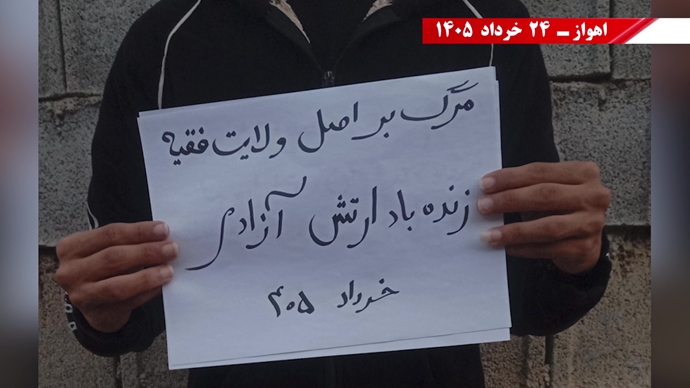 اهواز ـ ۲۴ خرداد ۱۴۰۵
مرگ بر اصل ولایت فقیه
زنده باد ارتش آزادی
خرداد ۴۰۵